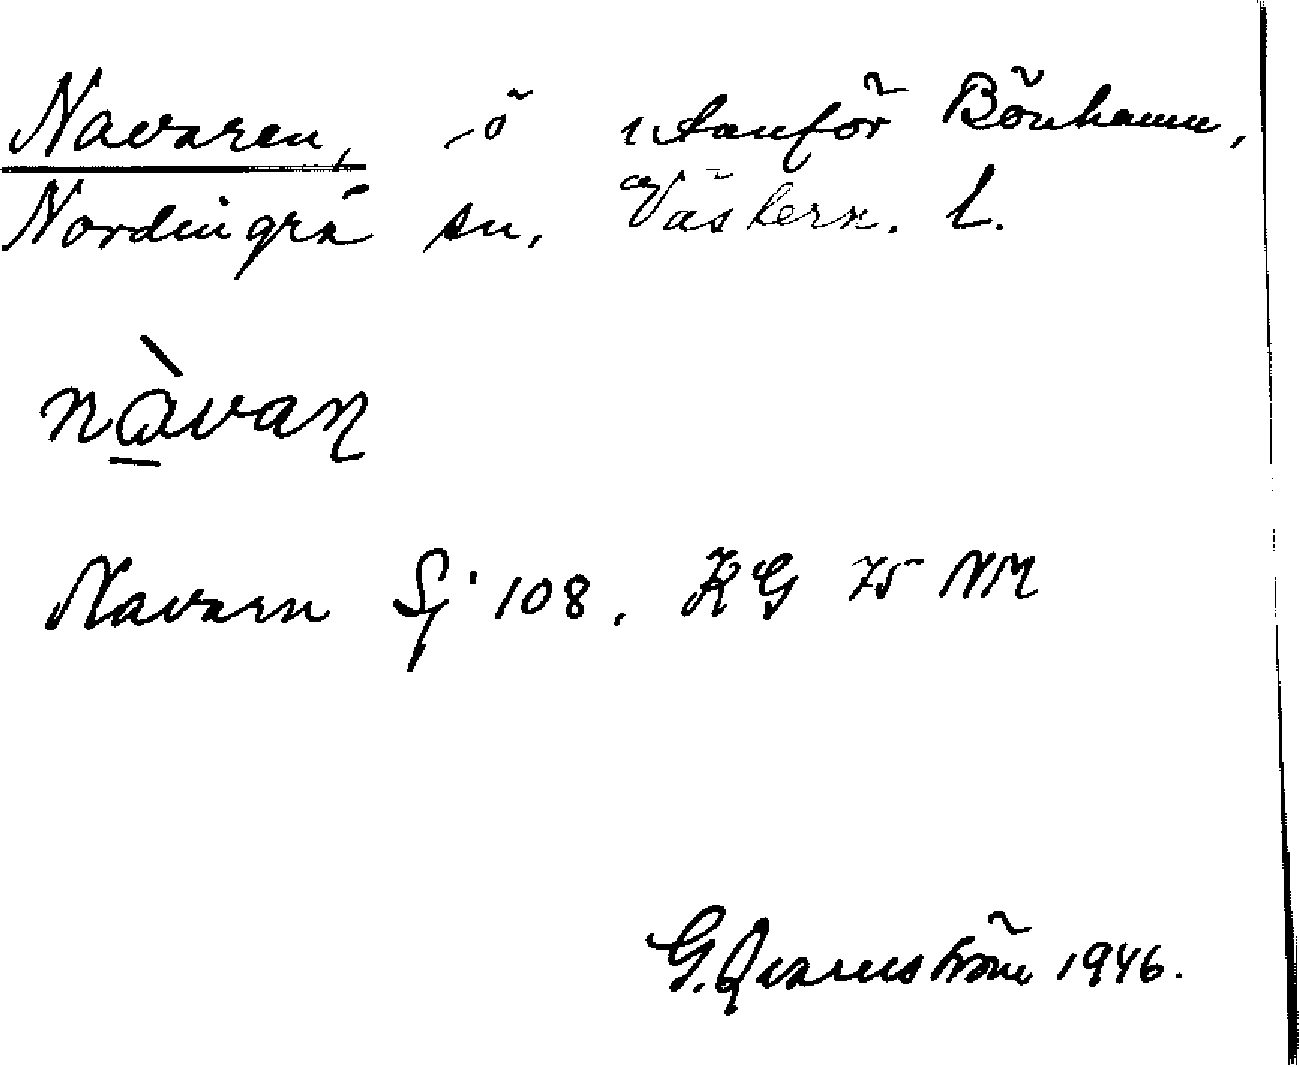 Navaren, ö utanför Bönhamn,
Nordingrå sn, Västern. L.
nàvaɳ
Navarn Sj 108. KG 75 NM
G. Qvarnström 1946.